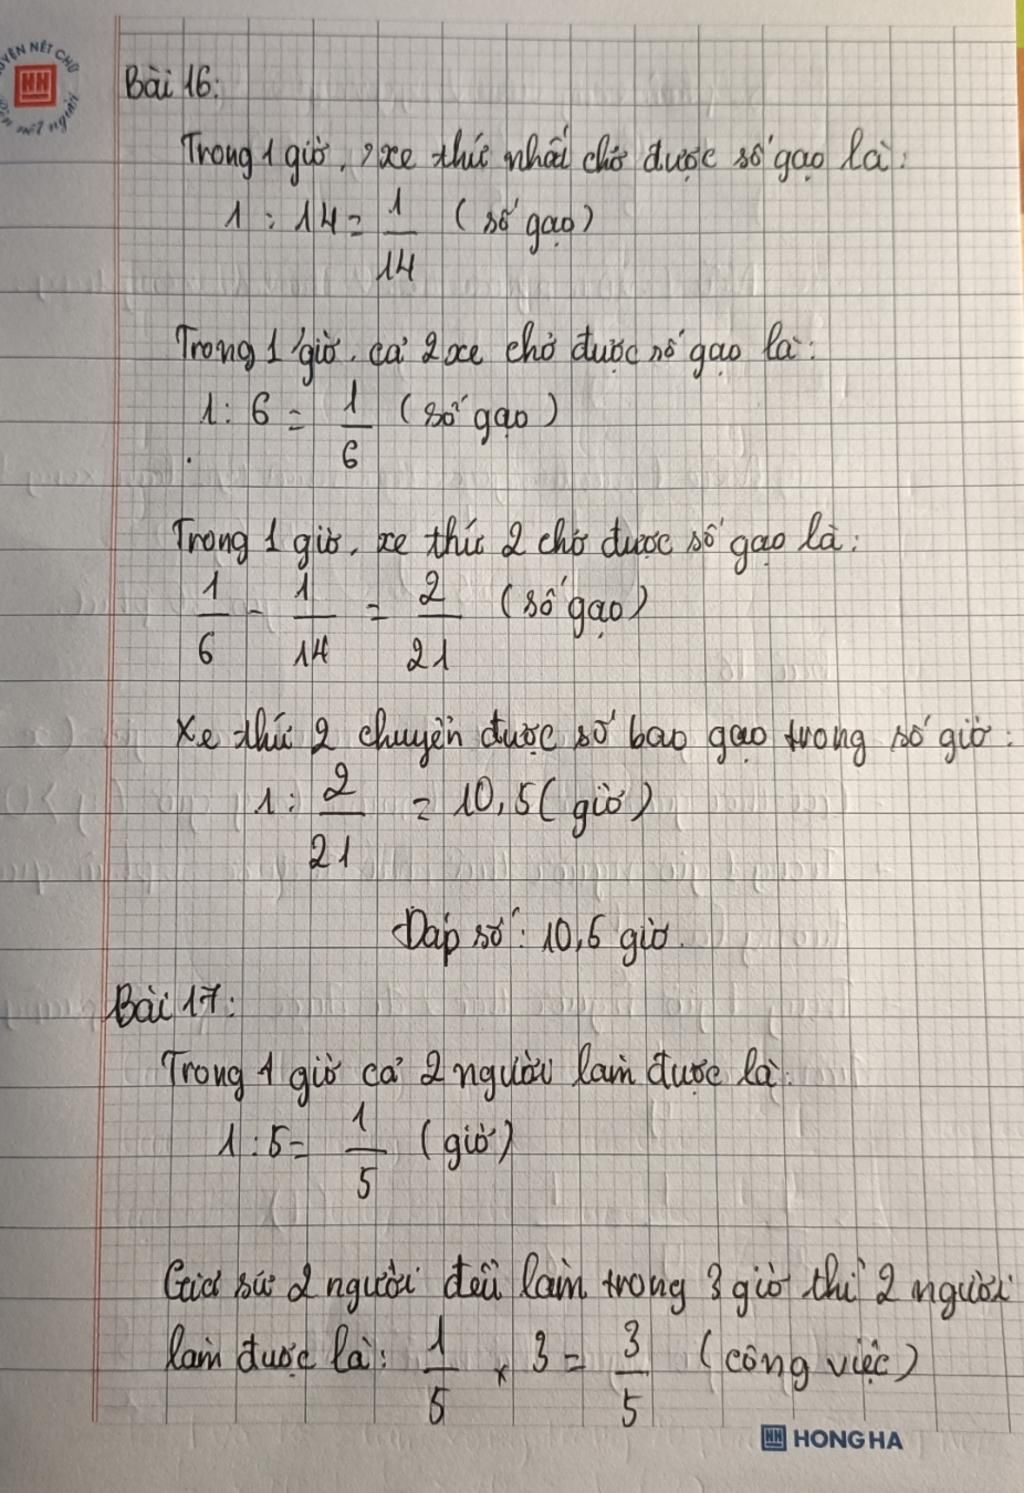 LUYỆN NÉT CHỮ
Rèn nết người
Bài 16:
Trong 1 giờ, xe thứ nhất chở được số gạo là:
1 : 14 = 1/14 (số gạo)
Trong 1 giờ, cả 2 xe chở được số gạo là:
1 : 6 = 1/6 (số gạo)
Trong 1 giờ, xe thứ 2 chở được số gạo là:
1/6 - 1/14 = 2/21 (số gạo)
Xe thứ 2 chuyển được số bao gạo trong số giờ:
1 : 2/21 = 10,5 (giờ)
Đáp số: 10,5 giờ.
Bài 17:
Trong 1 giờ cả 2 người làm được là:
1 : 5 = 1/5 (giờ)
Giả sử 2 người đều làm trong 3 giờ thì 2 người
làm được là: 1/5 x 3 = 3/5 (công việc)
HONG HA